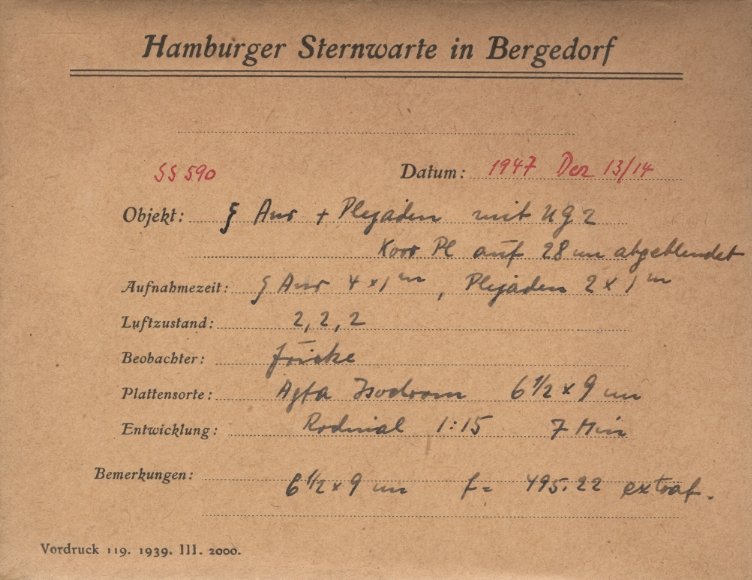 Hamburger Sternwarte in Bergedorf
SS 590 Datum: 1947 Dez 13/14
Objekt: ζ Aur + Plejaden mit UG2
Korr Pl auf 28 cm abgeblendet
Aufnahmezeit: ζ Aur 4 x 1 m, Plejaden 2 x 1 m
Luftzustand: 2, 2, 2
Beobachter:
Plattensorte: Agfa Isochrom 6 1/2 x 9 cm
Entwicklung: Rodinal 1:15 7 Min
Bemerkungen: 6 1/2 x 9 cm f = 495.22 extraf.
Vordruck 119. 1939. III. 2000.